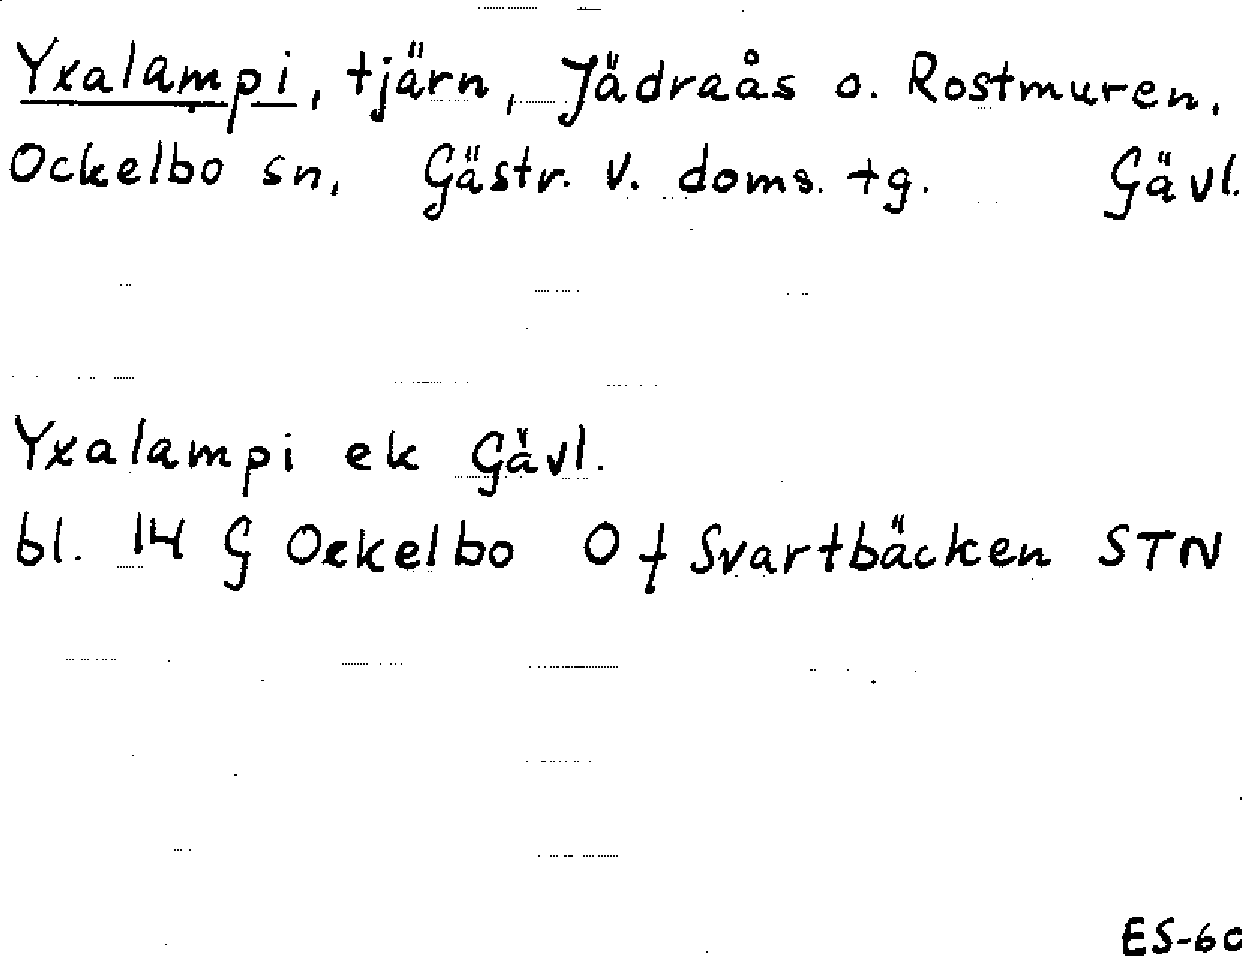 Yxalampi, tjärn, Jädraås o. Rostmuren,
Ockelbo sn, Gästr. V. doms. tg. Gävl.
Yxalampi ek Gävl.
bl. 14 G Ockelbo O f Svartbäcken STN
ES-60